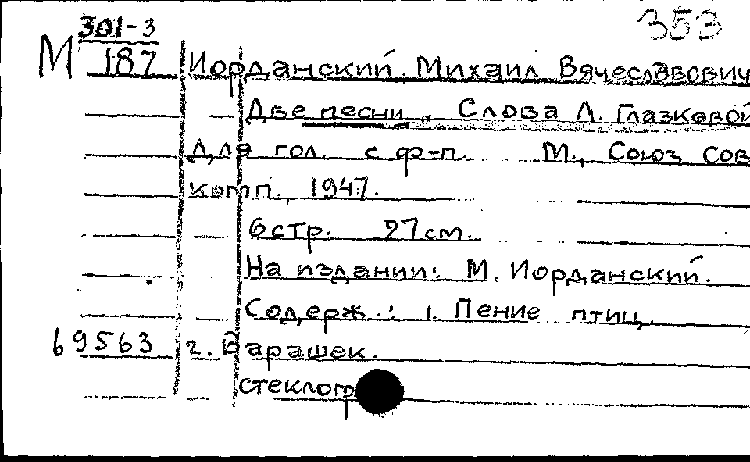 301-3
353
М 187 Иорданский Михаил Вячеславович
Две песни. Слова Л. Глазковой
Для гол. с ф-п. М., Союз сов
комп., 1947.
6 стр. 27 см.
На издании: М. Иорданский.
Содерж.: 1. Пение птиц
69563 2. Барашек.
стеклогр